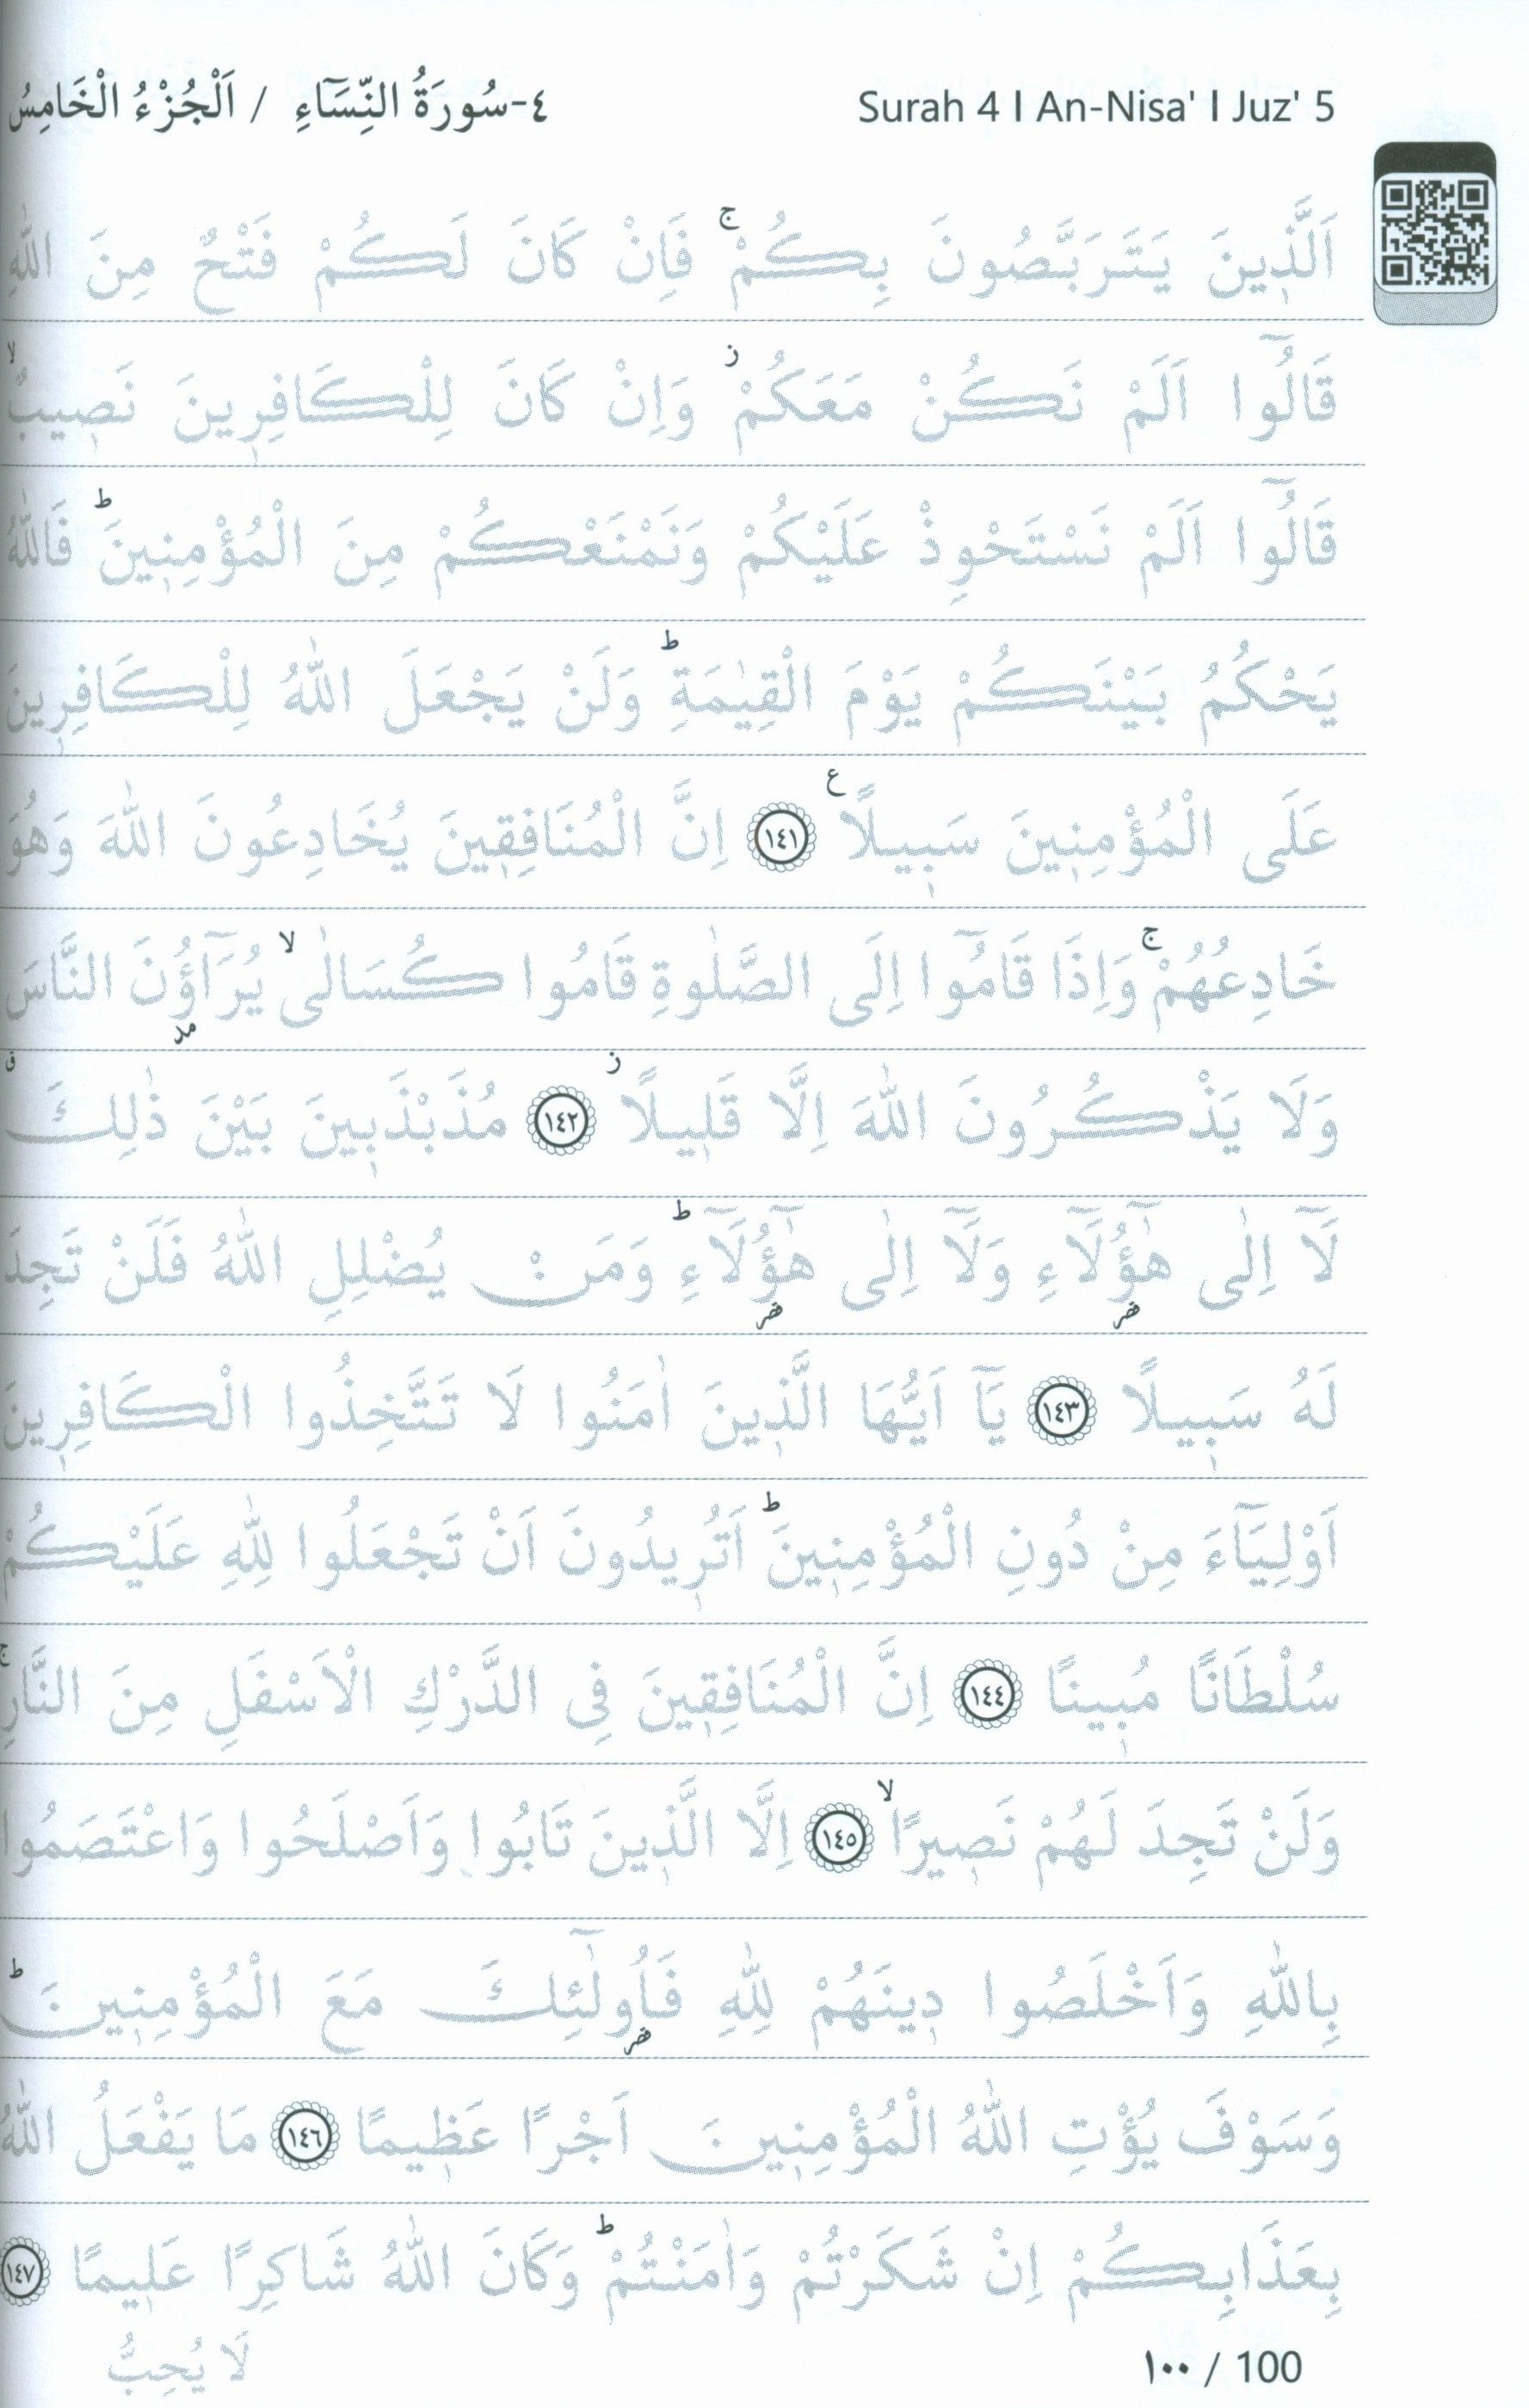 ٤-سُورَةُ النِّسَاءِ / اَلْجُزْءُ الْخَامِسُ
Surah 4 I An-Nisa' I Juz' 5
اَلَّذ۪ينَ يَتَرَبَّصُونَ بِكُمْۚ فَاِنْ كَانَ لَكُمْ فَتْحٌ مِنَ اللّٰهِ
قَالُٓوا اَلَمْ نَكُنْ مَعَكُمْۘ وَاِنْ كَانَ لِلْكَافِر۪ينَ نَص۪يبٌۙ
قَالُٓوا اَلَمْ نَسْتَحْوِذْ عَلَيْكُمْ وَنَمْنَعْكُمْ مِنَ الْمُؤْمِن۪ينَۜ فَاللّٰهُ
يَحْكُمُ بَيْنَكُمْ يَوْمَ الْقِيٰمَةِۜ وَلَنْ يَجْعَلَ اللّٰهُ لِلْكَافِر۪ينَ
عَلَى الْمُؤْمِن۪ينَ سَب۪يلًا ع ١٤١ اِنَّ الْمُنَافِق۪ينَ يُخَادِعُونَ اللّٰهَ وَهُوَ
خَادِعُهُمْۚ وَاِذَا قَامُٓوا اِلَى الصَّلٰوةِ قَامُوا كُسَالٰىۙ يُرَٓاؤُ۫نَ النَّاسَ
وَلَا يَذْكُرُونَ اللّٰهَ اِلَّا قَل۪يلًا ز ١٤٢ مُذَبْذَب۪ينَ بَيْنَ ذٰلِكَ ق
لَٓا اِلٰى هٰٓؤُ۬لَٓاءِ وَلَٓا اِلٰى هٰٓؤُ۬لَٓاءِۜ وَمَنْ يُضْلِلِ اللّٰهُ فَلَنْ تَجِدَ
لَهُ سَب۪يلًا ١٤٣ يَٓا اَيُّهَا الَّذ۪ينَ اٰمَنُوا لَا تَتَّخِذُوا الْكَافِر۪ينَ
اَوْلِيَٓاءَ مِنْ دُونِ الْمُؤْمِن۪ينَۜ اَتُر۪يدُونَ اَنْ تَجْعَلُوا لِلّٰهِ عَلَيْكُمْ
سُلْطَانًا مُب۪ينًا ١٤٤ اِنَّ الْمُنَافِق۪ينَ فِى الدَّرْكِ الْاَسْفَلِ مِنَ النَّارِۚ
وَلَنْ تَجِدَ لَهُمْ نَص۪يرًاۙ ١٤٥ اِلَّا الَّذ۪ينَ تَابُوا وَاَصْلَحُوا وَاعْتَصَمُوا
بِاللّٰهِ وَاَخْلَصُوا د۪ينَهُمْ لِلّٰهِ فَاُو۬لٰٓئِكَ مَعَ الْمُؤْمِن۪ينَۜ
وَسَوْفَ يُؤْتِ اللّٰهُ الْمُؤْمِن۪ينَ اَجْرًا عَظ۪يمًا ١٤٦ مَا يَفْعَلُ اللّٰهُ
بِعَذَابِكُمْ اِنْ شَكَرْتُمْ وَاٰمَنْتُمْۜ وَكَانَ اللّٰهُ شَاكِرًا عَل۪يمًا ١٤٧
لَا يُحِبُّ
١٠٠ / 100